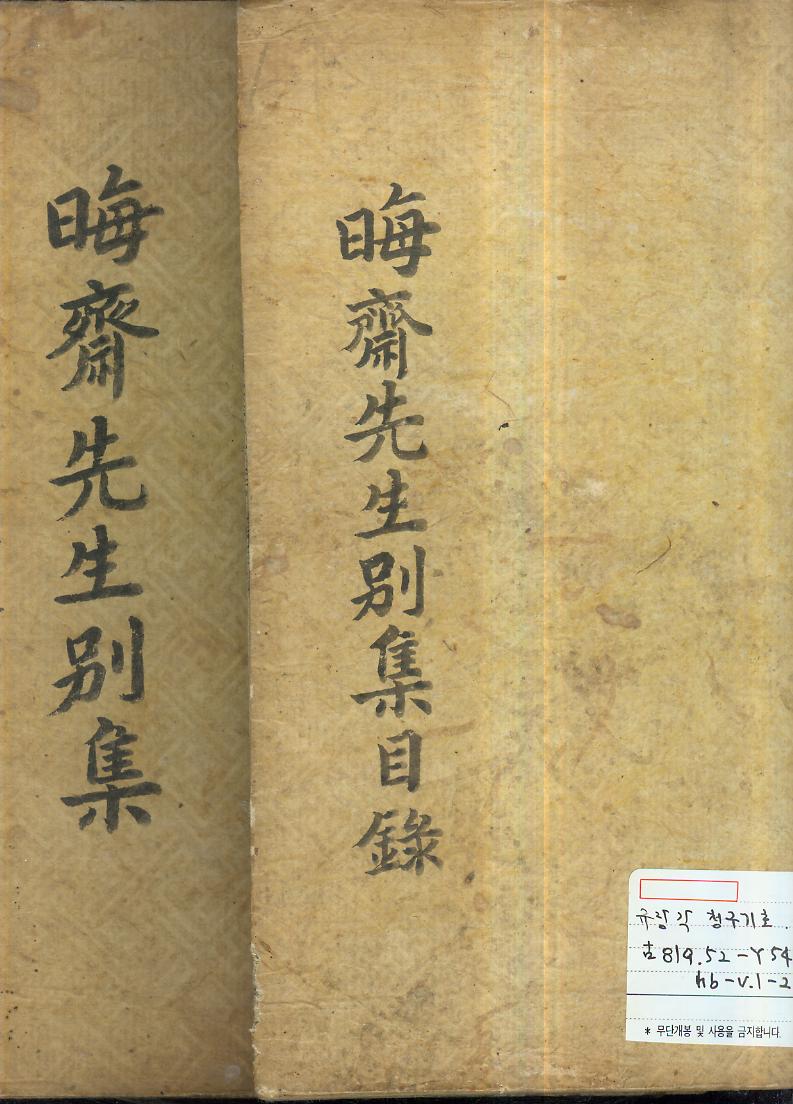 晦齋先生別集目錄
晦齋先生別集
규장각 청구기호.
古819.52-Y54
hb-v.1-2
* 무단개봉 및 사용을 금지합니다.